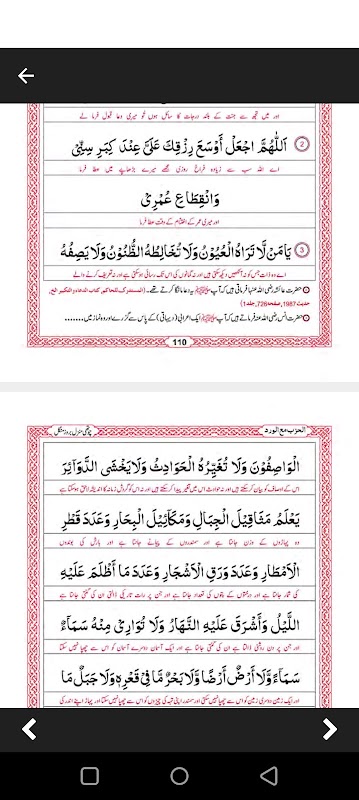 اور میں تجھ سے جنت کے بلند درجات کا سائل ہوں تو میری دعا قبول فرما لے
② اَللّٰهُمَّ اجْعَلْ أَوْسَعَ رِزْقِكَ عَلَيَّ عِنْدَ كِبَرِ سِنِّيْ
اے اللہ سب سے زیادہ فراخ روزی مجھے میرے بڑھاپے میں عطا فرما
وَانْقِطَاعِ عُمُرِيْ
اور میری عمر کے اختتام کے وقت عطا فرما
③ يَا مَنْ لَّا تَرَاهُ الْعُيُوْنُ وَلَا تُخَالِطُهُ الظُّنُوْنُ وَلَا يَصِفُهُ
اے وہ ذات جس کو نہ آنکھیں دیکھ سکتی ہیں اور نہ گمانوں کی اس تک رسائی ہوسکتی ہے اور نہ تعریف کرنے والے
حضرت عائشہ رضی اللہ عنہا فرماتی ہیں کہ آپ ﷺ یہ دعا مانگا کرتے تھے۔ (المستدرک للحاکم، کتاب الدعاء والتکبیر الخ،
حدیث 1987، صفحہ 726، جلد 1)
حضرت انس رضی اللہ عنہ فرماتے ہیں کہ آپ ﷺ ایک اعرابی (دیہاتی) کے پاس سے گزرے اور وہ نماز میں .......
110
الحزب مع الورد
چوتھی منزل بروز منگل
الْوَاصِفُوْنَ وَلَا تُغَيِّرُهُ الْحَوَادِثُ وَلَا يَخْشَى الدَّوَآئِرَ
اس کے اوصاف کو بیان کرسکتے ہیں اور نہ حوادث اس میں تغیر پیدا کرسکتے ہیں اور نہ اس کو گردش زمانہ کا اندیشہ لاحق ہوسکتا ہے
يَعْلَمُ مَثَاقِيْلَ الْجِبَالِ وَمَكَآئِيْلَ الْبِحَارِ وَعَدَدَ قَطْرِ
وہ پہاڑوں کے وزن جانتا ہے اور سمندروں کے پیمانے جانتا ہے اور بارش کی بوندوں
الْاَمْطَارِ وَعَدَدَ وَرَقِ الْاَشْجَارِ وَعَدَدَ مَا أَظْلَمَ عَلَيْهِ
کی شمار جانتا ہے اور درختوں کے پتوں کی تعداد جانتا ہے اور جن پر رات تاریکی ڈالتی ان کی گنتی جانتا ہے
اللَّيْلُ وَأَشْرَقَ عَلَيْهِ النَّهَارُ وَلَا تُوَارِيْ مِنْهُ سَمَآءٌ
اور جن پر دن روشنی ڈالتا ہے ان کی گنتی جانتا ہے اور ایک آسمان دوسرے آسمان کو اس سے چھپا نہیں سکتا
سَمَآءً وَّلَا أَرْضٌ أَرْضًا وَّلَا بَحْرٌ مَّا فِيْ قَعْرِهٖ وَلَا جَبَلٌ مَا
اور ایک زمین دوسری زمین کو اس سے چھپا نہیں سکتی اور سمندر اپنی تہہ کی چیزوں کو اس سے چھپا نہیں سکتا اور پہاڑ اپنے اندر کی